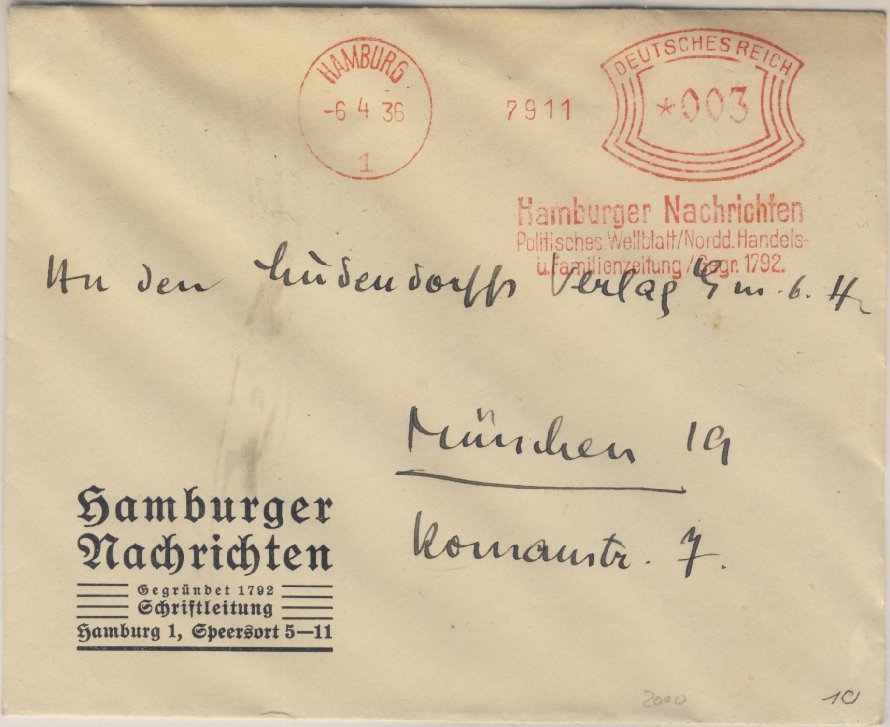 HAMBURG
-6 4 36
1
7911
DEUTSCHES REICH
*003
Hamburger Nachrichten
Politisches Weltblatt/Nordd. Handels-
u. Familienzeitung/Gegr. 1792.
An den Ludendorffs Verlag G.m.b.H.
München 19
Romanstr. 7.
Hamburger
Nachrichten
Gegründet 1792
Schriftleitung
Hamburg 1, Speersort 5—11
2000
10